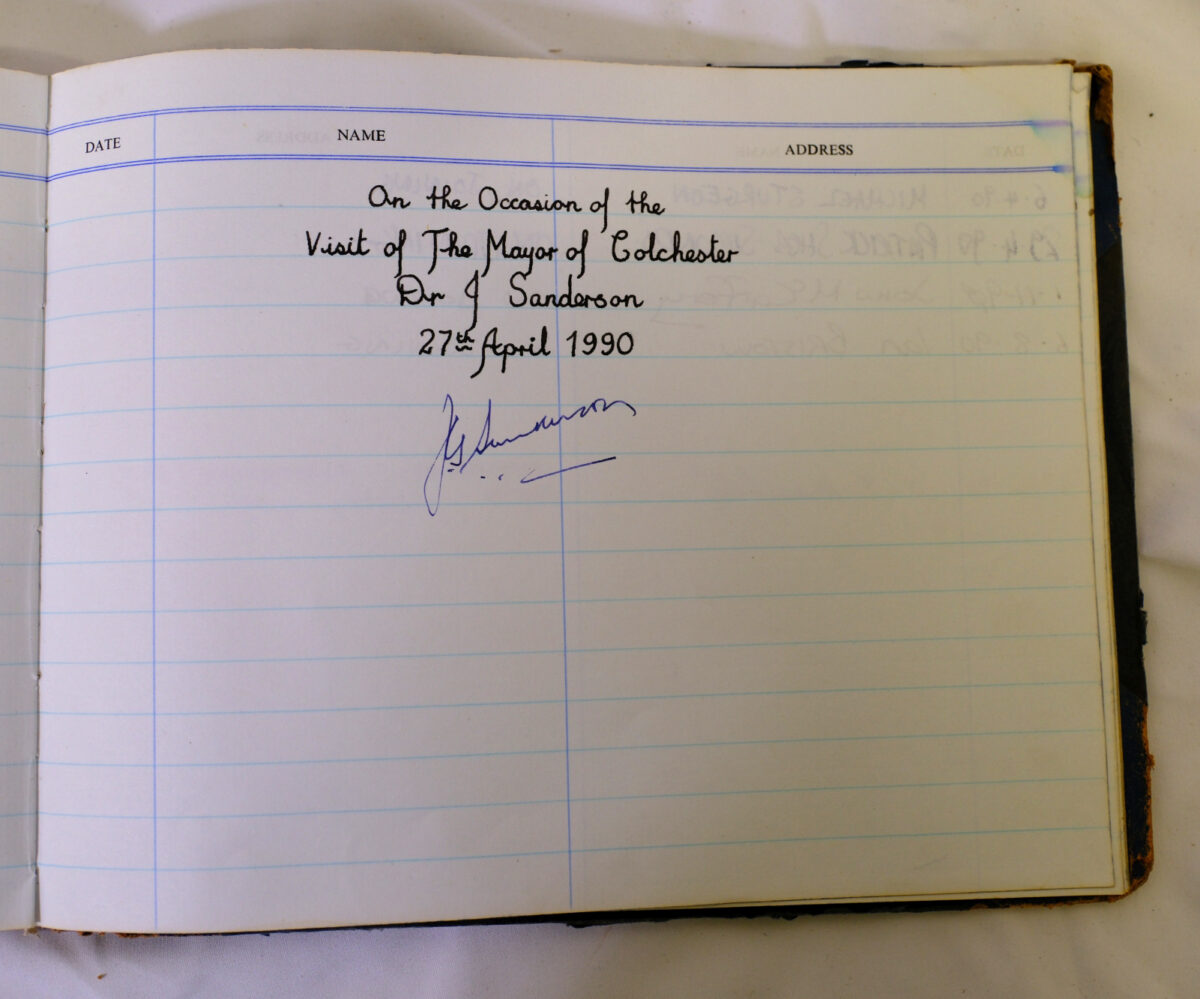 DATE NAME ADDRESS
On the Occasion of the
Visit of The Mayor of Colchester
Dr J Sanderson
27th April 1990
J G Sanderson